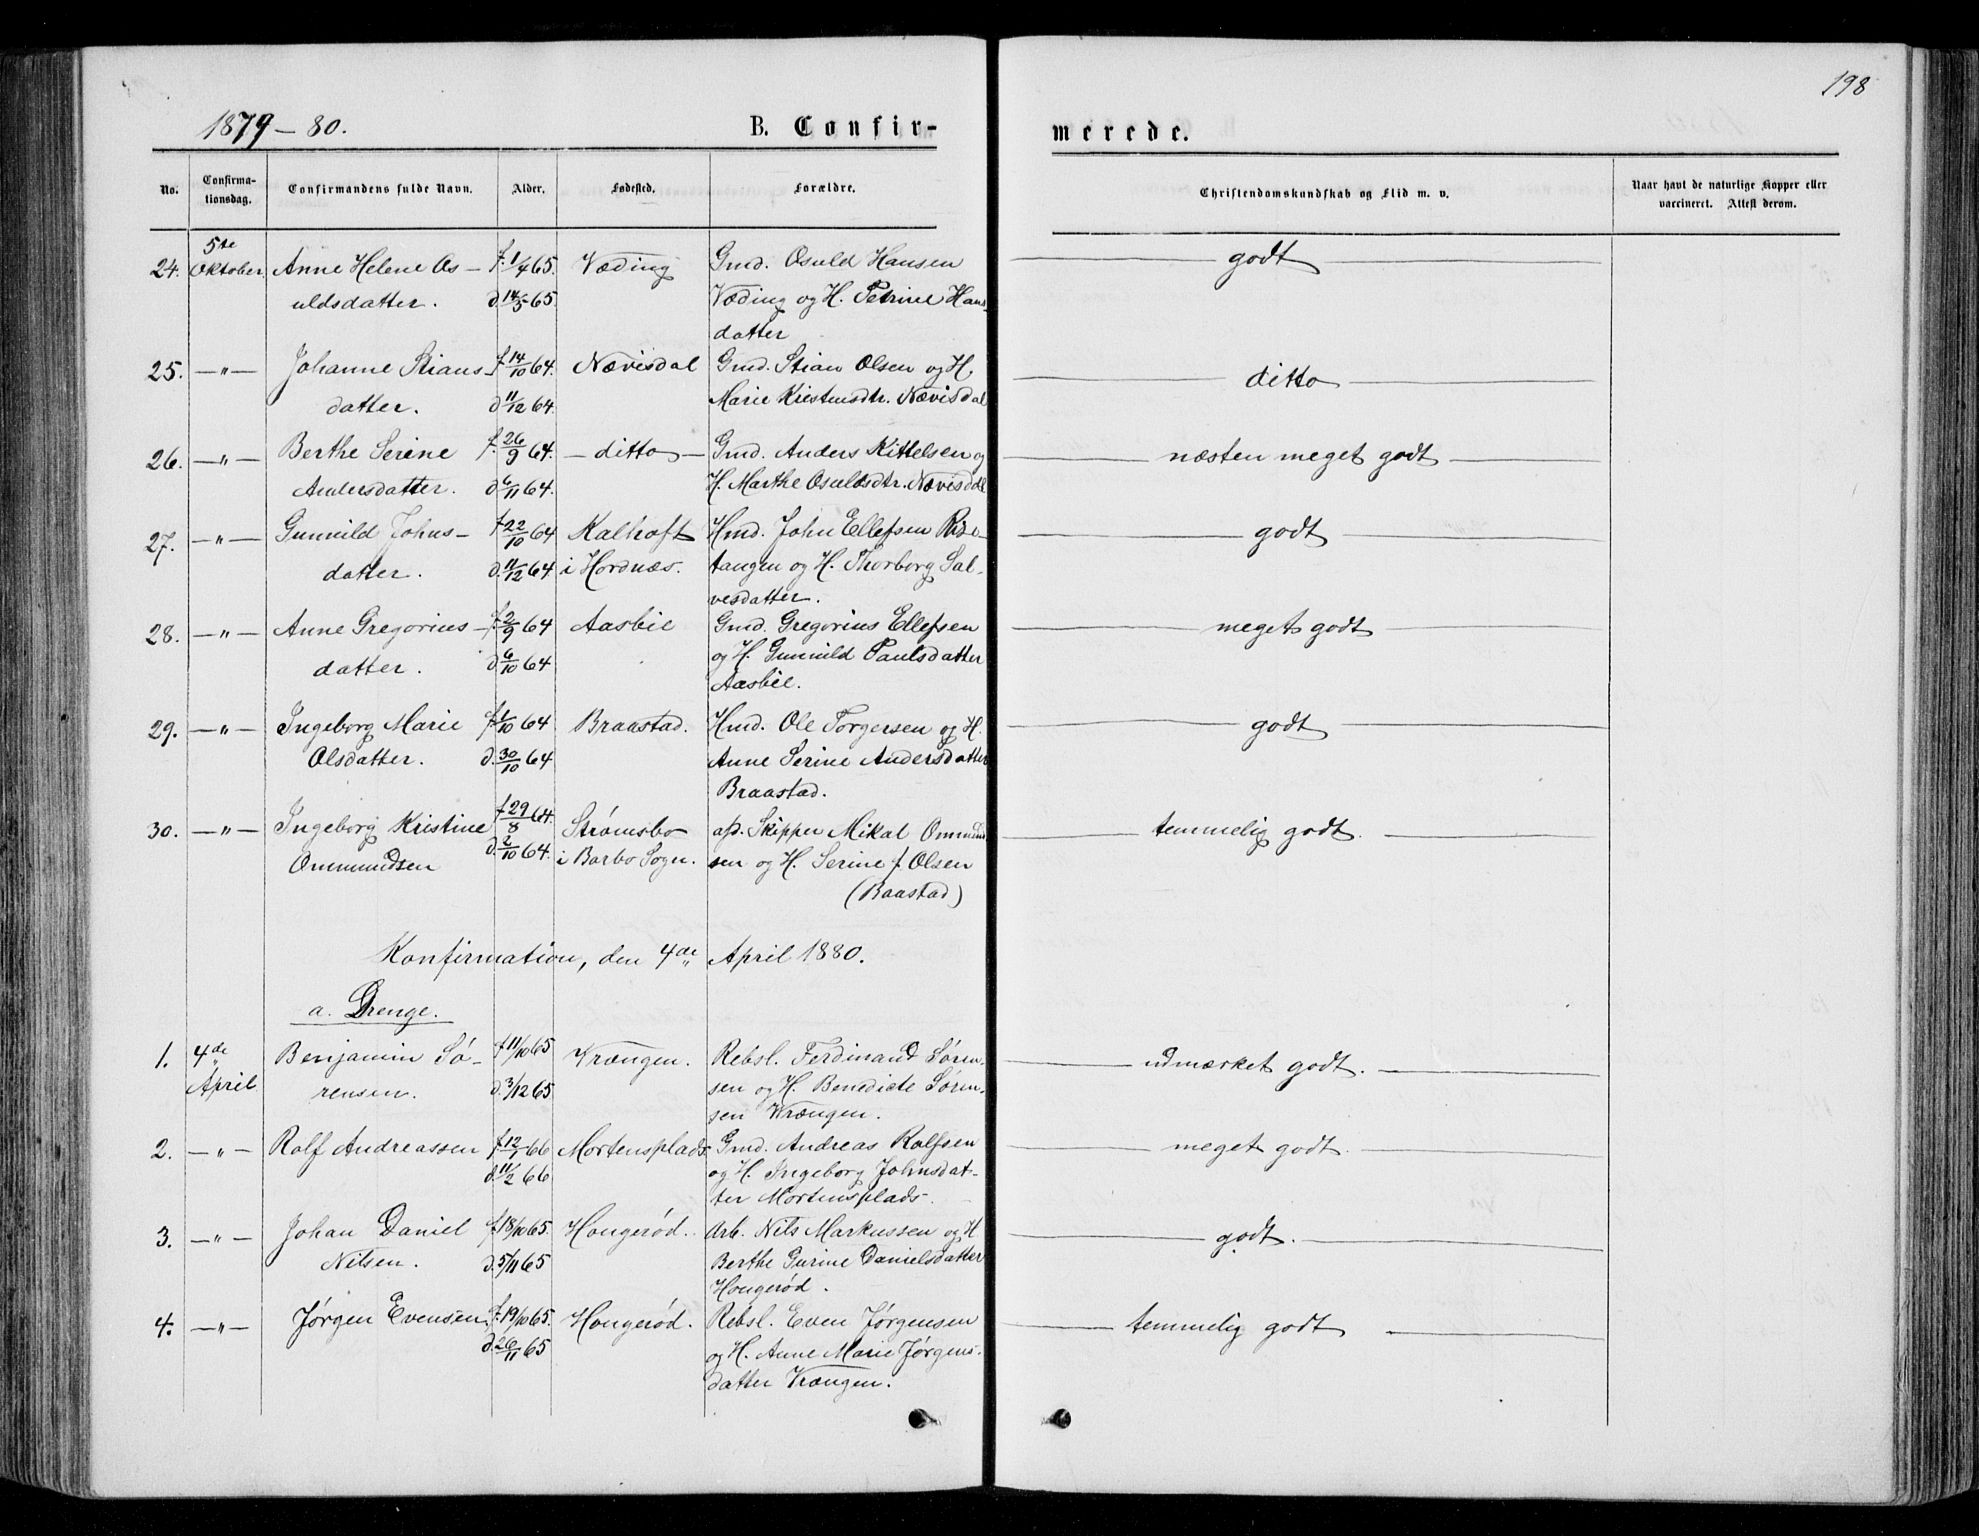 198
1879-80.
B. Confirmerede.
No.
Confirmationsdag.
Confirmandens fulde Navn.
Alder.
Fødested.
Forældre.
Christendomskundskab og Flid m. v.
Naar havt de naturlige Kopper eller
vaccineret. Attest derom.
24. 5te Oktober Anne Helene Os- f. 1/4 65. Væding Gmd. Osuld Hansen godt
uldsdatter. d. 14/5 65 Væding og H. Petrine Hans-
datter
25. —"— Johanne Stians- f. 14/10 64. Nævisdal Gmd. Stian Olsen og H. ditto
datter. d 11/12 64. Marie Kristensdtr. Nævisdal
26. —"— Berthe Serine f. 26/9 64. — ditto — Gmd. Anders Kittelsen og næsten meget godt
Andersdatter. d 6/11 64. H. Marthe Osuldsdtr. Nævisdal
27. —"— Gunvild Johns- f 22/10 64 Kalhaft Hmd. John Ellefsen Rise- godt
datter. d. 11/12 64 i Hordnæs. tangen og H. Thorborg Sal-
vesdatter.
28. —"— Anne Gregorius- f. 2/9 64 Aasbie Gmd. Gregorius Ellefsen meget godt
datter. d 6/10 64 og H. Gunvild Paulsdatter
Aasbie.
29. —"— Ingeborg Marie f 1/10 64 Braastad. Hmd. Ole Torgersen og H. godt
Olsdatter. d. 30/10 64 Anne Serine Andersdatter
Braastad.
30. —"— Ingeborg Kristine f 29/8 64. Strømsbo afd. Skipper Mikal Ommund temmelig godt.
Ommundsen d. 2/10 64. i Barbo Sogn. sen og H. Serine f. Olsen
(Baastad)
Konfirmation, den 4de April 1880.
a. Drenge.
1. 4de April Benjamin Sø- f 11/10 65 Vrængen. Rebsl. Ferdinand Søren- udmærket godt.
rensen. d. 3/12 65 sen og H. Benedicte Søren-
sen Vrængen.
2. —"— Rolf Andreassen f 12/1 66 Mortensplads Gmd. Andreas Rolfsen meget godt.
d 11/2 66 og H. Ingeborg Johnsdat-
ter Mortensplads.
3. —"— Johan Daniel f 18/10 65. Hougerød. Arb. Nils Markussen og H. godt.
Nilsen. d. 5/11 65 Berthe Gurine Danielsdatter
Hougerød.
4. —"— Jørgen Evensen. f. 19/10 65. Hougerød. Rebsl. Even Jørgensen temmelig godt
d. 26/11 65 og H. Anne Marie Jørgens-
datter Vrængen.